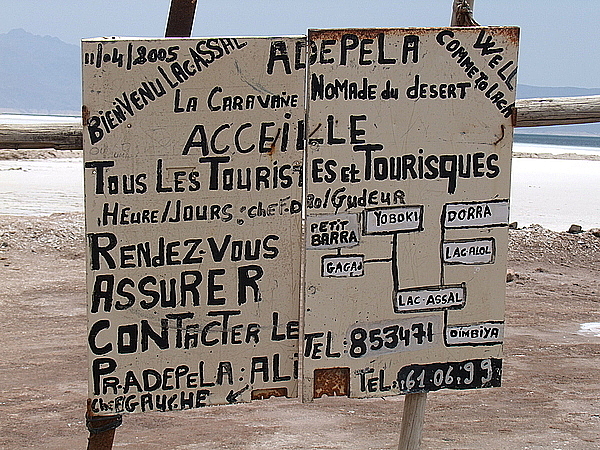 11/04/2005
BIENVENU LAC ASSAL
ADEPELA
WELL
COME TO LACA
LA CARAVANE NOMADE DU DESERT
ACCEILLE
TOUS LES TOURISTES ET TOURISQUES
HEURE/JOURS
RENDEZ-VOUS
ASSURER
CONTACTER LE
PR.ADEPELA: ALI
CHEF GAUCHE
PETIT
BARRA
YOBOKI
DORRA
GAGA
LAC ALOL
LAC-ASSAL
DIMBIYA
TEL: 853471
TEL: 61.06.99